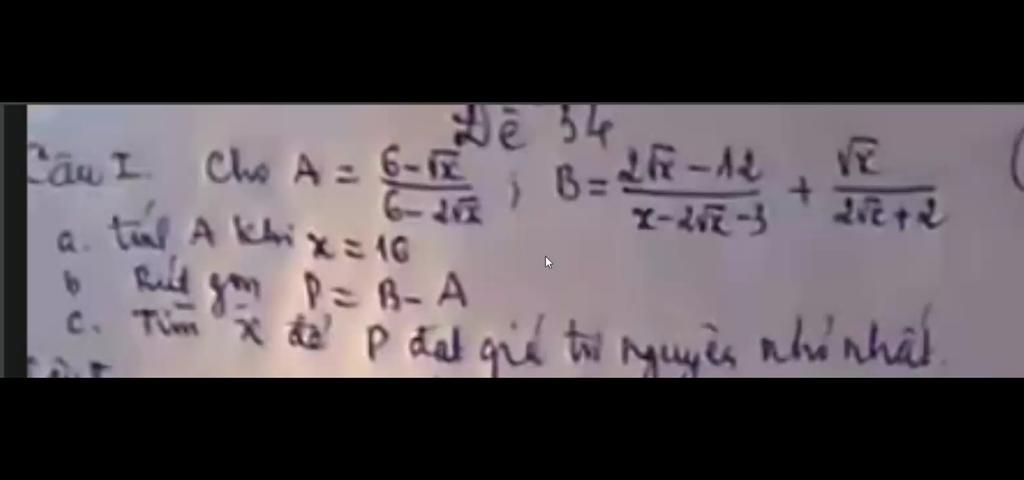 Đề 34
Câu I. Cho A = (6-√x)/(6-2√x) ; B = (2√x-12)/(x-2√x-3) + √x/(2√x+2)
a. tính A khi x = 16
b Rút gọn P = B - A
c. Tìm x để P đạt giá trị nguyên nhỏ nhất.